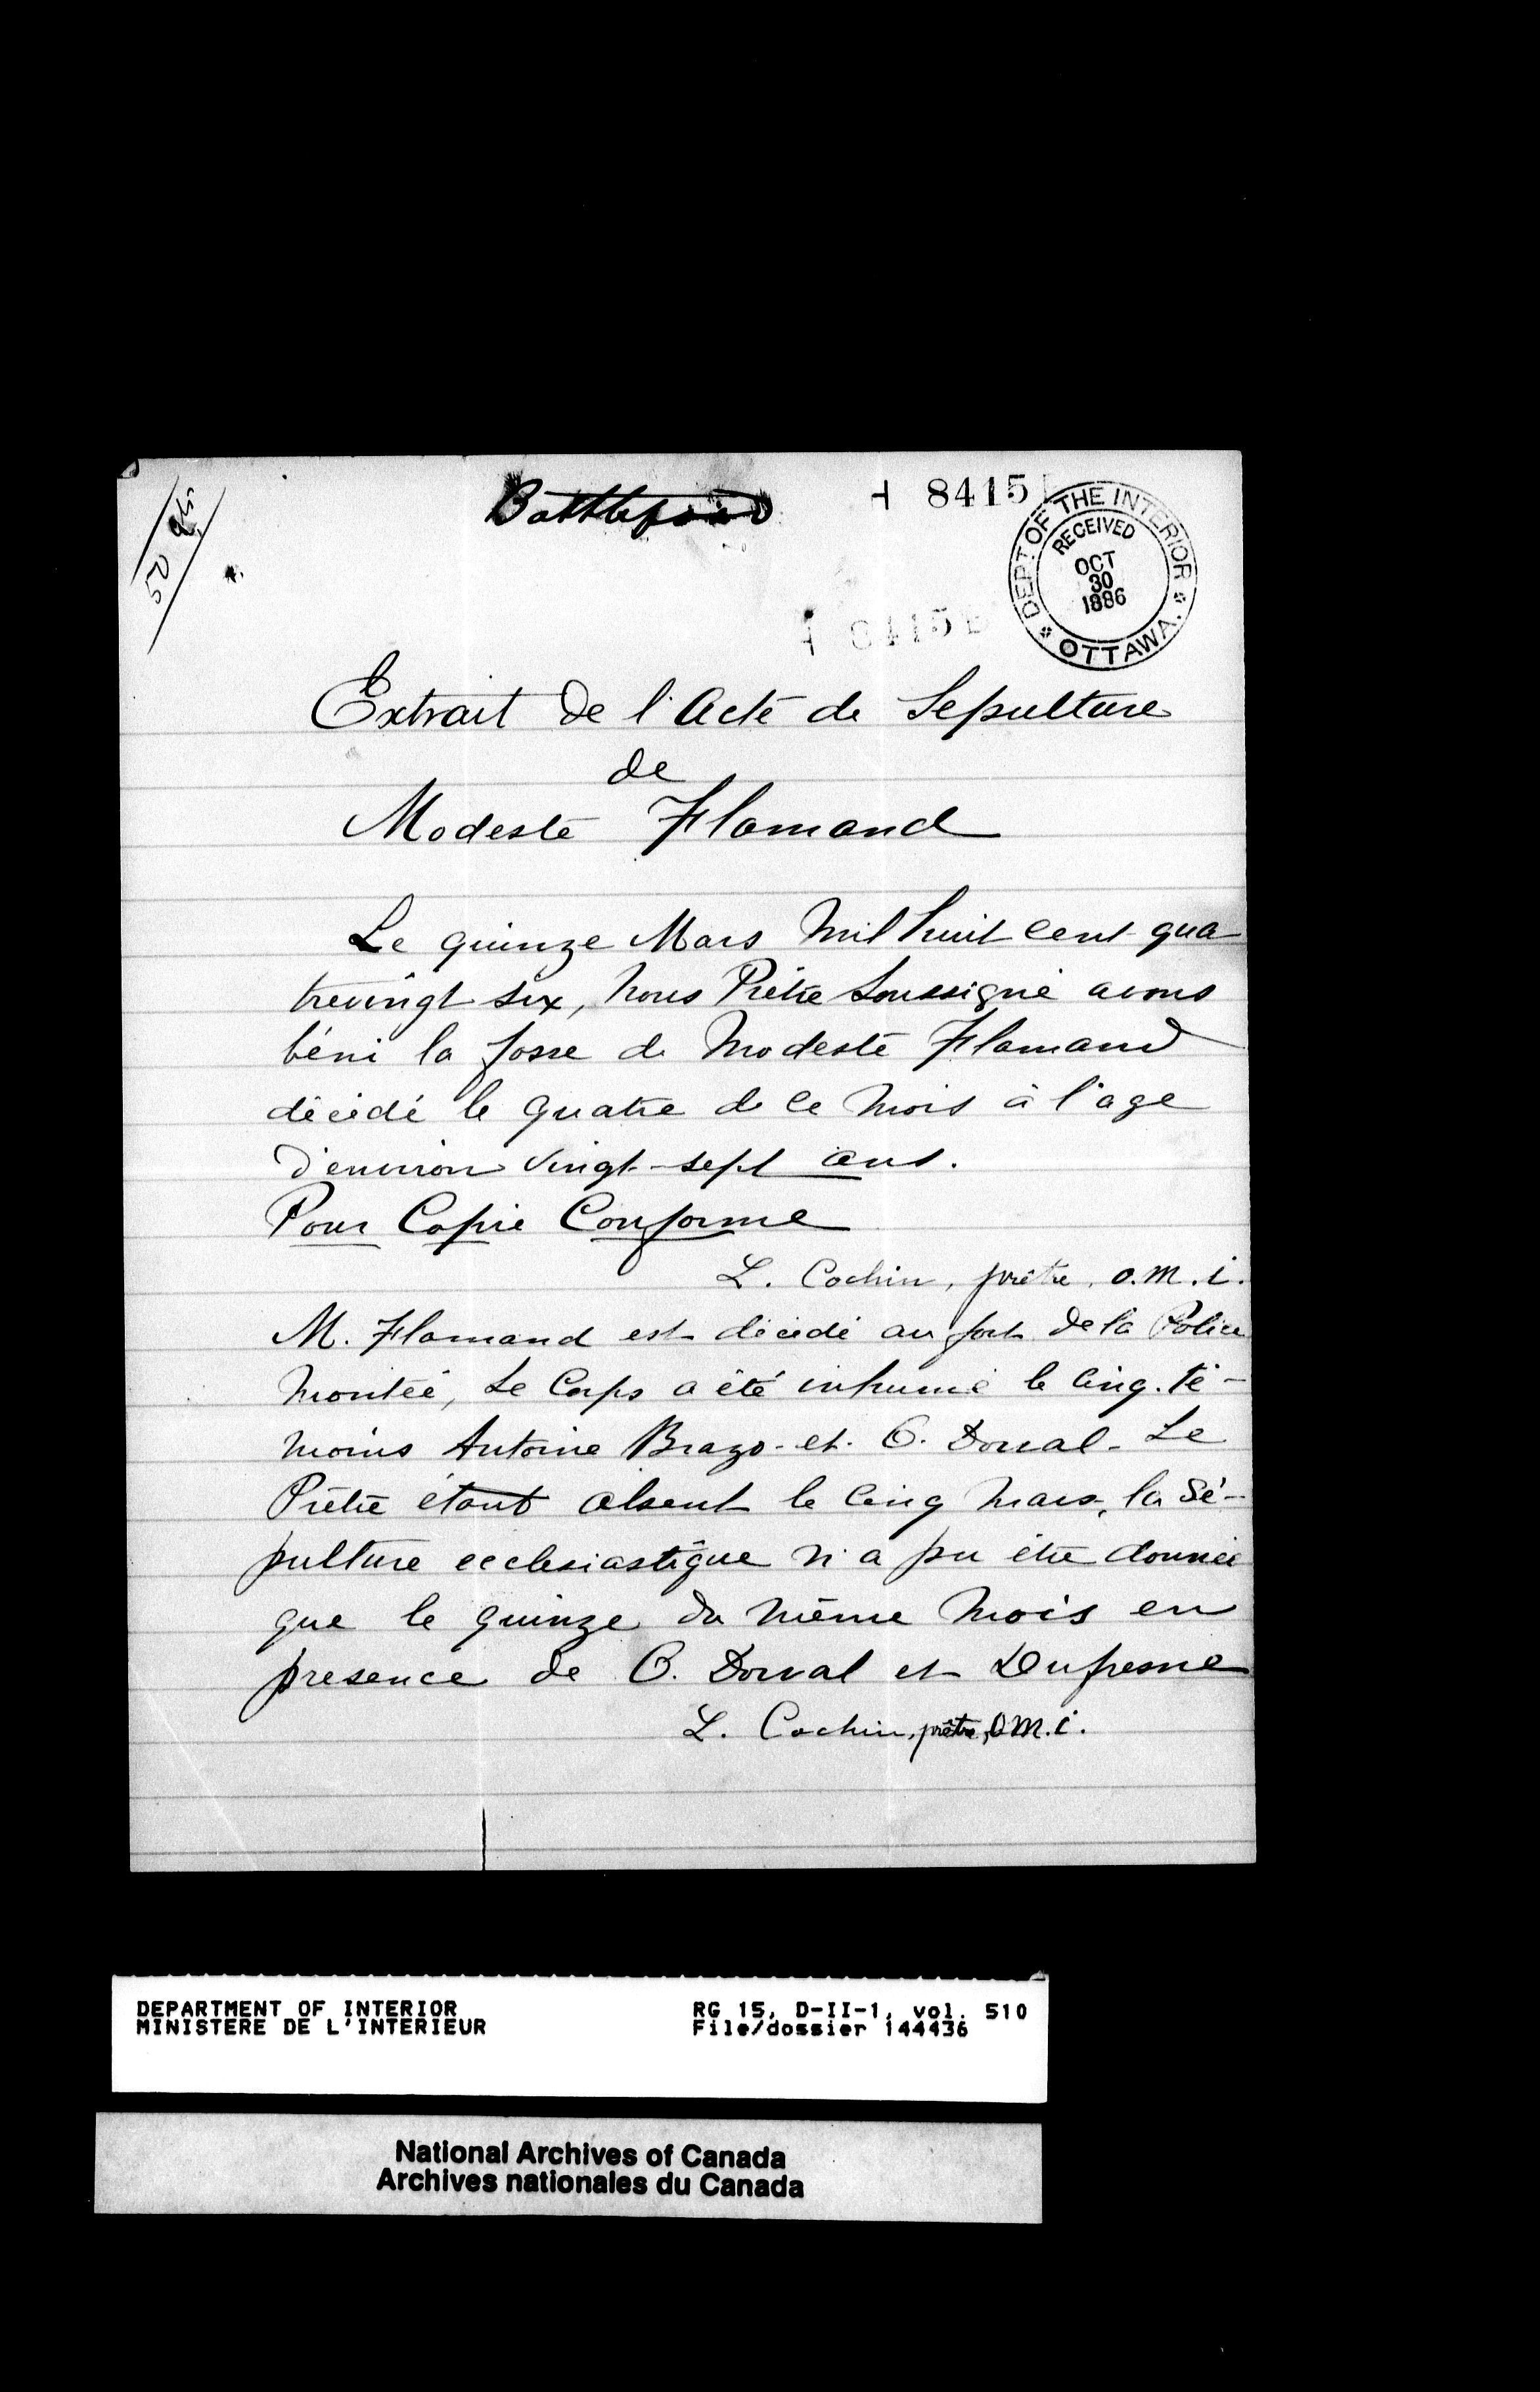 Battleford
8415
DEPT OF THE INTERIOR
RECEIVED
OCT
30
1886
OTTAWA.
50
8415
Extrait de l'Acte de Sepulture
de
Modeste Flamand
Le quinze Mars Mil huit cent qua
trevingt six, nous Prêtre Soussigné avons
béni la fosse de Modeste Flamand
décédé le quatre de ce mois à l'age
d'environ vingt-sept ans.
Pour Copie Conforme
L. Cochin, prêtre, o.m.i.
M. Flamand est décédé au fort de la Police
montée, Le Corps a été inhumé le cinq. té-
moins Antoine Brazo et O. Dorval - Le
Prêtre étant absent le cinq mars, la sé-
pulture ecclesiastique n'a pu être donnée
que le quinze du même mois en
presence de O. Dorval et Dufresne
L. Cochin, prêtre, O.M.I.
DEPARTMENT OF INTERIOR
MINISTERE DE L'INTERIEUR
RG 15, D-II-1, vol. 510
File/dossier 144436
National Archives of Canada
Archives nationales du Canada